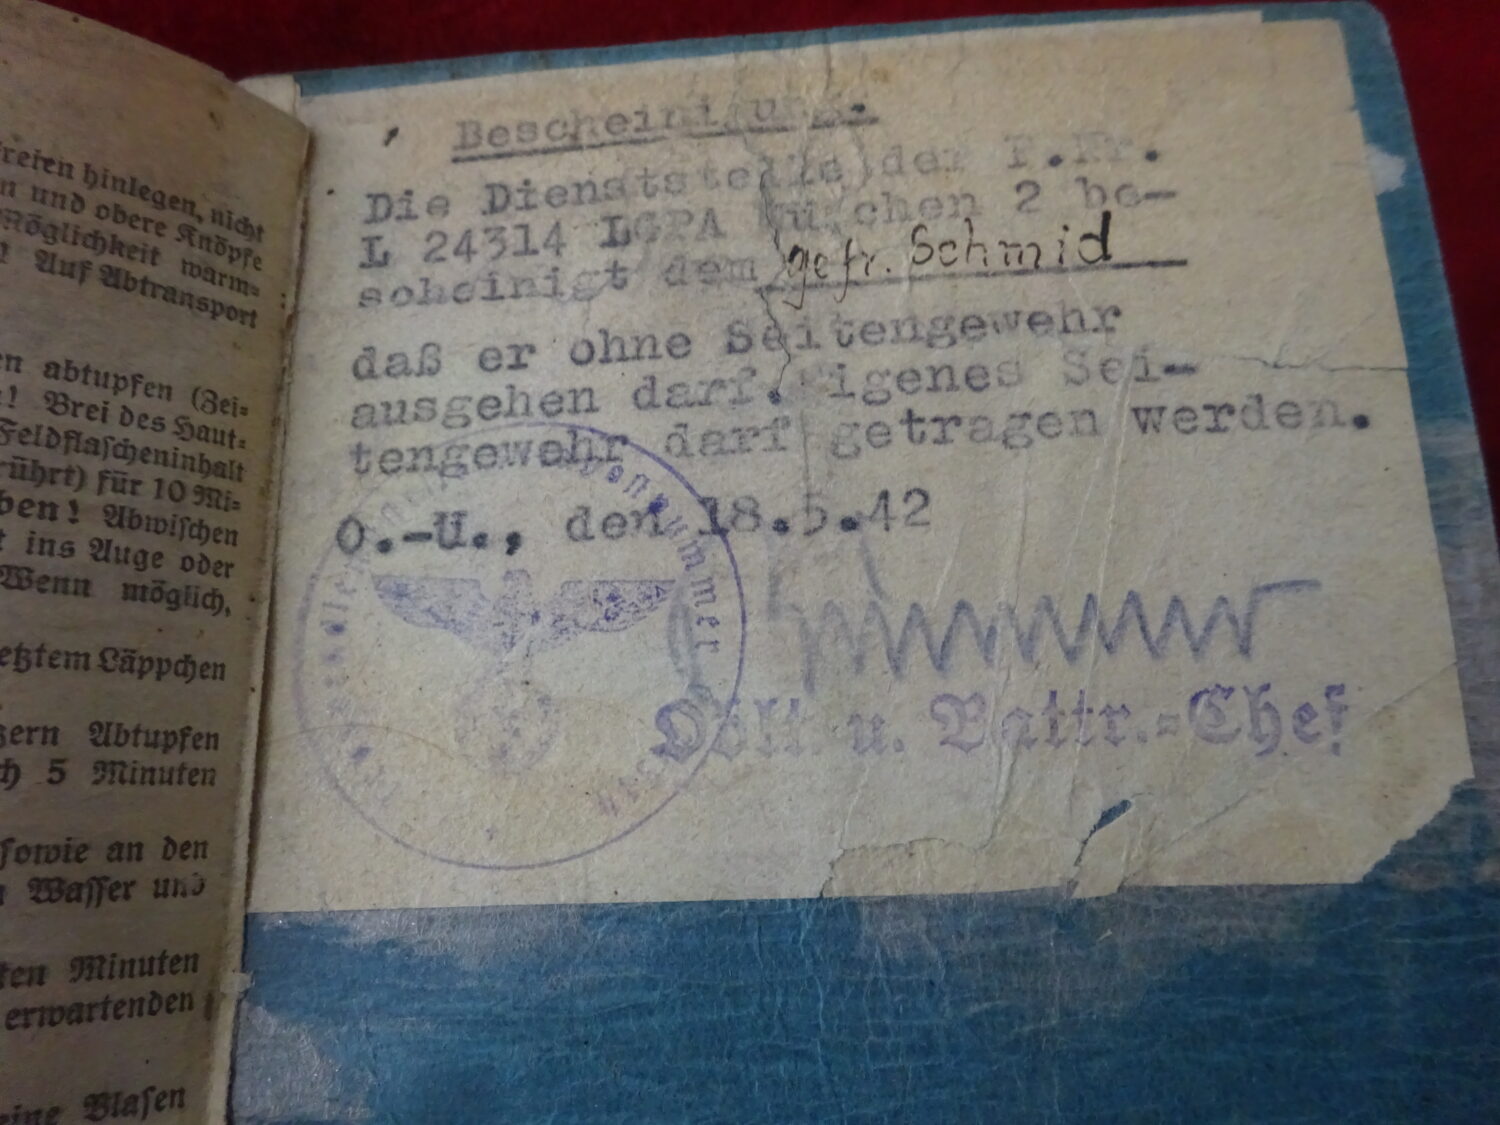 treten hinlegen, nicht
n und obere Knöpfe
Möglichkeit warm=
! Auf Abtransport
en abtupfen (Zei=
! Brei des Haut=
Feldflascheninhalt
rührt) für 10 Mi=
ben! Abwischen
t ins Auge oder
Wenn möglich,
etztem Läppchen
zern Abtupfen
ch 5 Minuten
sowie an den
n Wasser und
ten Minuten
erwartenden
eine Blasen
Bescheinigung.
Die Dienststelle der F.Nr.
L 24314 LGPA München 2 be-
scheinigt dem gefr. Schmid
daß er ohne Seitengewehr
ausgehen darf. Eigenes Sei-
tengewehr darf getragen werden.
O.-U., den 18.5.42
u. Battr.=Chef